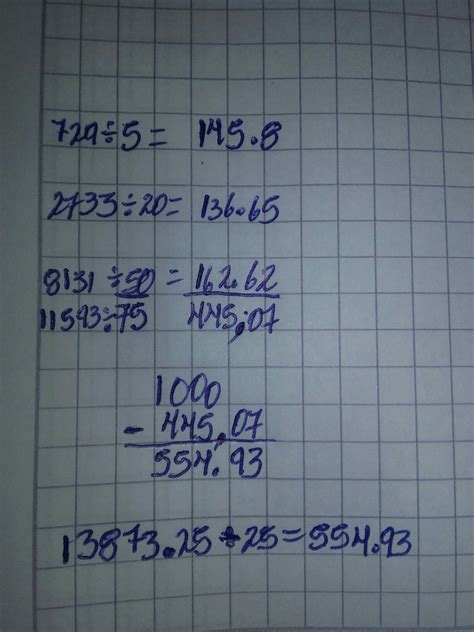 729÷5= 145.8
2733÷20= 136.65
8131÷50= 162.62
11593÷75 445,07
1000
- 445,07
554.93
13873.25÷25=554.93